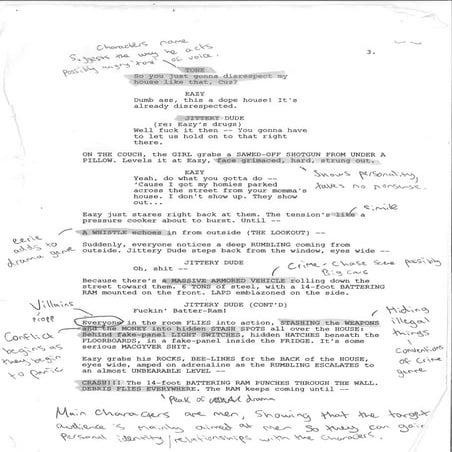 Characters name
3.
Suggests the way he acts
Possibly angry 'tone' of voice.
TONE
So you just gonna disrespect my
house like that, Cuz?
EAZY
Dumb ass, this a dope house! It's
already disrespected.
JITTERY DUDE
(re: Eazy's drugs)
Well fuck it then -- You gonna have
to let us hold on to that right
there.
ON THE COUCH, the GIRL grabs a SAWED-OFF SHOTGUN FROM UNDER A
PILLOW. Levels it at Eazy, face grimaced, hard, strung out.
Shows personality,
takes no nonsense.
EAZY
Yeah, do what you gotta do --
'Cause I got my homies parked
across the street from your momma's
house. I don't show up. They show
out...
Eazy just stares right back at them. The tension's like a
pressure cooker about to burst. Until --
simile
A WHISTLE echoes in from outside (THE LOOKOUT) --
eerie
adds to
drama genre
Suddenly, everyone notices a deep RUMBLING coming from
outside. Jittery Dude steps back from the window, eyes wide --
JITTERY DUDE
Oh, shit --
Crime - Chase scene possibly
Big cars
Because there's a MASSIVE ARMORED VEHICLE rolling down the
street toward them. 6 TONS of steel, with a 14-foot BATTERING
RAM mounted on the front. LAPD emblazoned on the side.
JITTERY DUDE (CONT'D)
Fuckin' Batter-Ram!
Villains
Everyone in the room FLIES into action, STASHING the WEAPONS
and the MONEY into hidden STASH SPOTS all over the HOUSE:
behind fake-panel LIGHT SWITCHES, hidden HATCHES beneath the
FLOORBOARDS, in a fake-panel inside the FRIDGE. It's some
serious MACGYVER SHIT.
Hiding
illegal
things
conventions
of Crime
genre
Conflict
begins as
they begin
to panic
Eazy grabs his ROCKS, BEE-LINES for the BACK OF THE HOUSE,
eyes wide, amped on adrenaline as the RUMBLING ESCALATES to
an almost UNBEARABLE LEVEL --
CRASH!!! The 14-foot BATTERING RAM PUNCHES THROUGH THE WALL.
DEBRIS FLIES EVERYWHERE. The RAM keeps coming until --
Peak of drama
Main Characters are men, Showing that the target
audience is mainly aimed at men so they can gain
Personal identity/relationships with the characters.